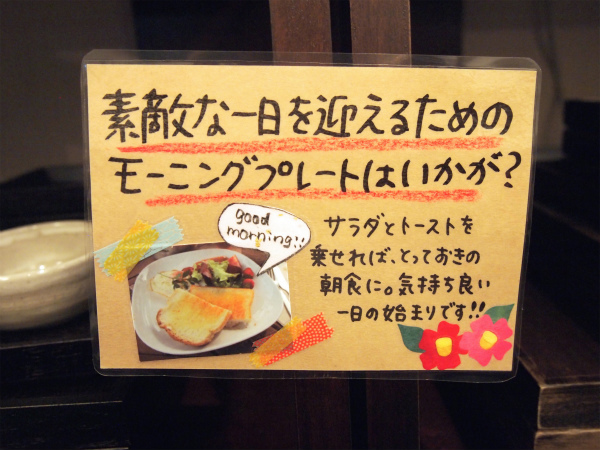 素敵な一日を迎えるための
モーニングプレートはいかが?
good
morning!!
サラダとトーストを
乗せれば、とっておきの
朝食に。気持ち良い
一日の始まりです!!